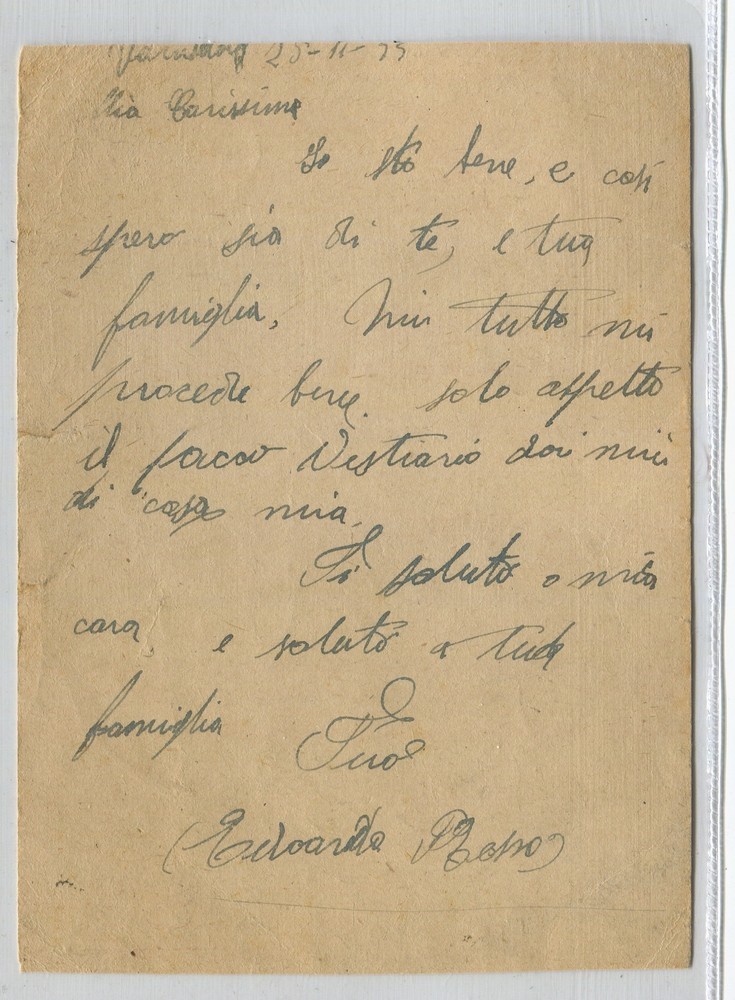 25-11-
Mia Carissima
Io stò bene, e così
spero sia di te, e tua
famiglia. Quì tutto mi
procede bene. solo aspetto
il pacco Vestiario dai miei
di casa mia.
Ti saluto o mia
cara, e saluto a tua
famiglia
Tuo
(Edoardo Rosso)